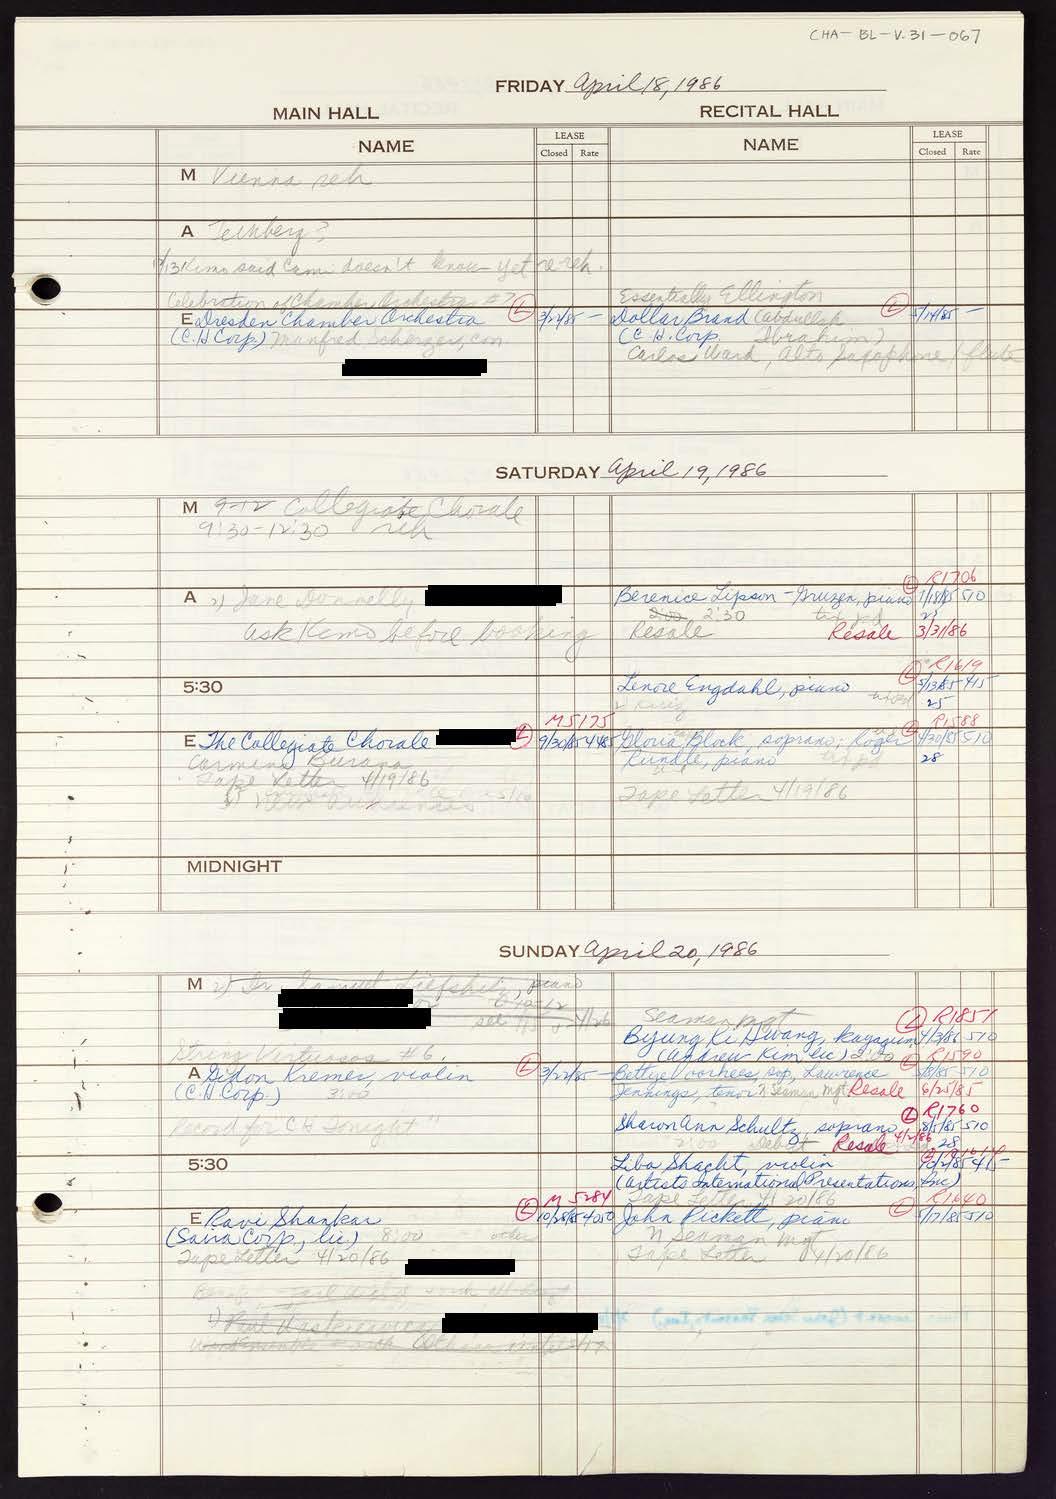 CHA-BL-V.31-067
FRIDAY April 18, 1986
MAIN HALL
RECITAL HALL
NAME
LEASE
Closed Rate
NAME
LEASE
Closed Rate
M Vienna reh
A
Kimo said Cami doesn't know yet re reh.
Celebration of Chamber Orchestra #7
E Dresden Chamber Orchestra (L) 3/22/85 -
(C.H. Corp) Manfred Scherzer, con
Essentially Ellington
Dollar Brand (Abdullah (L) 5/14/85 -
(C.H. Corp. Ibrahim)
Carlos Ward, Alto Saxophone / flute
SATURDAY April 19, 1986
M 9-12 Collegiate Chorale
9:30-12:30 reh
A 2) Jane Donnelly
ask Kimo before booking
(L) R1706
Berenice Lipson-Gruzen, piano 1/18/85 510
2:00 2:30
Resale Resale 3/31/86
5:30
(L) R1619
Lenore Engdahl, piano 5/13/85 415
25
M5175
E The Collegiate Chorale (L) 9/30/85 4485
Carmina Burana
Tape Letter 4/19/86
(L) R1588
Gloria Block, soprano; Roger 4/30/85 510
Rundle, piano 28
Tape Letter 4/19/86
MIDNIGHT
SUNDAY April 20, 1986
M 2) Samuel Liefshitz, piano
Seaman Mgt (L) R1851
Byung Ki Hwang, kayagum 4/3/86 510
(Andrew Kim lic) 2:00
String Virtuosos #6
A Gidon Kremer, violin (L) 3/22/85 -
(C.H. Corp.) 3:00
Record for CH Tonight"
R1590
Bettye Voorhees, sop, Lawrence 510
Jennings, tenor Seaman Mgt Resale 6/25/85
(L) R1760
Sharon Ann Schultz, soprano 8/5/85 510
2:00 Debut Resale 4/2/86 28
5:30
Liba Shacht, violin
(Artists International Presentations, Inc)
Tape Letter 4/20/86
M 5284
E Ravi Shankar (L) 10/28/85 4050
(Sava Corp, lic) 8:00 other
Tape Letter 4/20/86
John Pickett, piano (L) 5/17/85 510
Seaman Mgt
Tape Letter 4/20/86